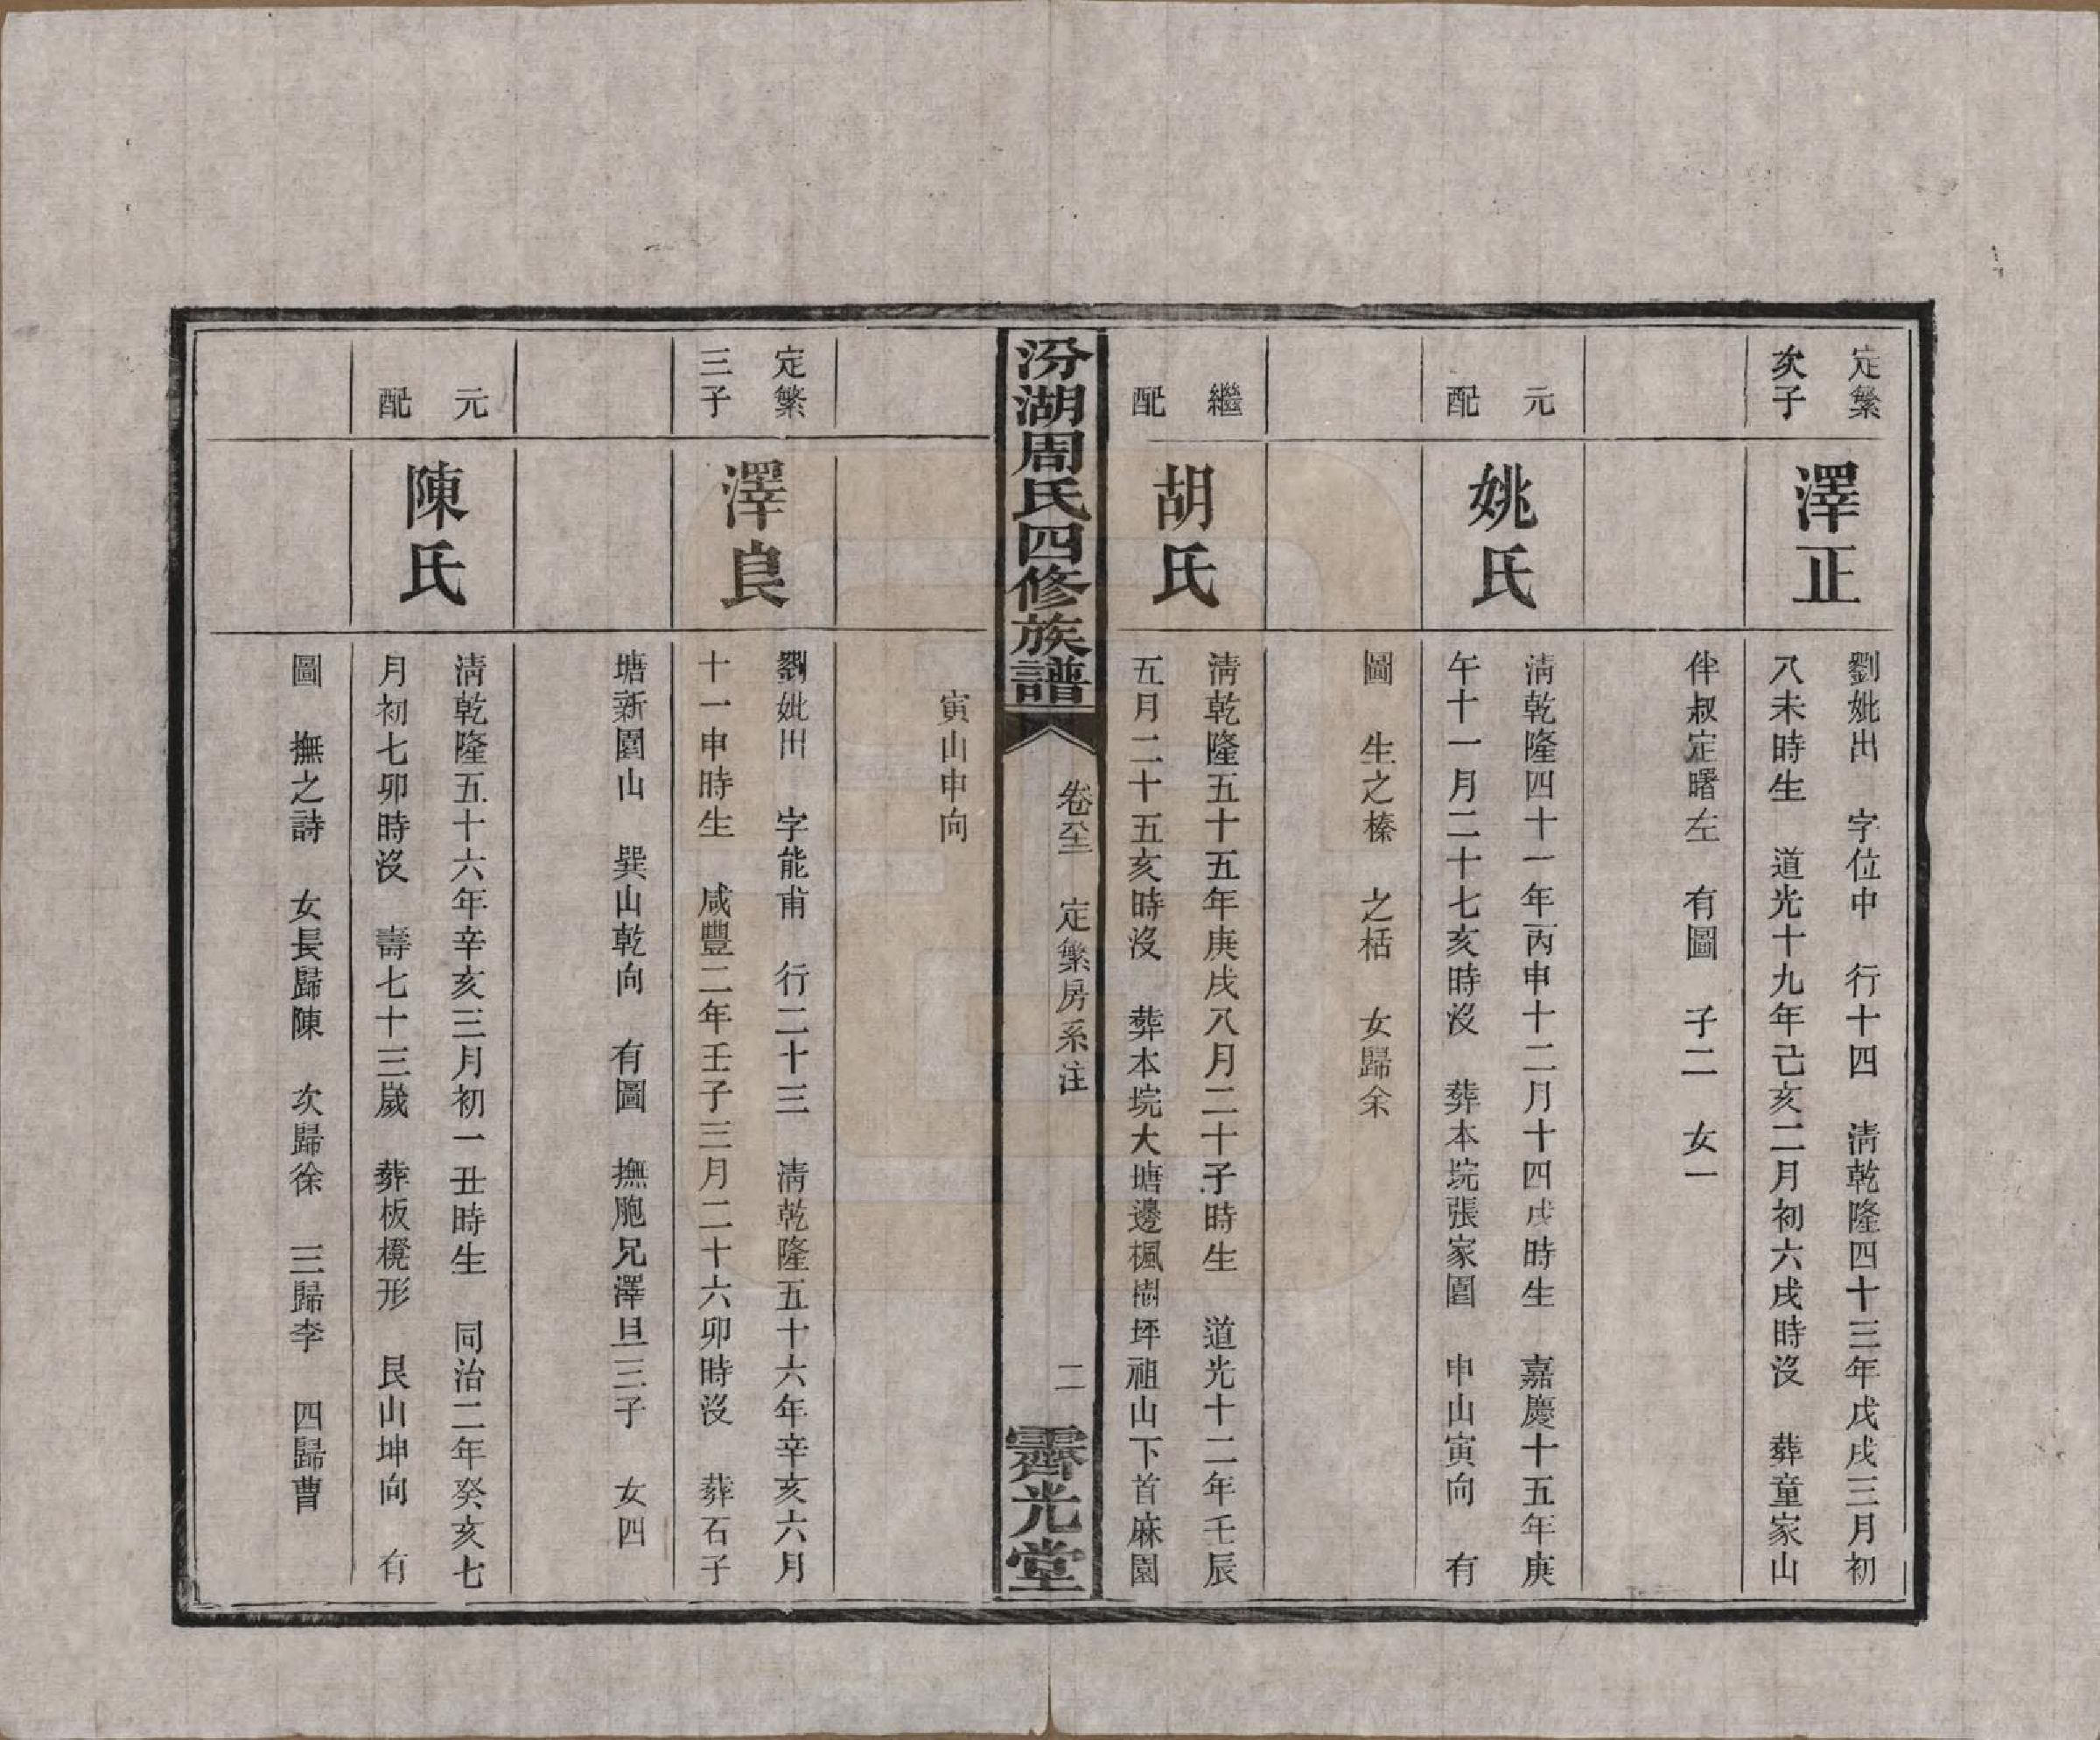 定繁
次子
澤正
劉妣出 字位中 行十四 清乾隆四十三年戊戌三月初
八未時生 道光十九年己亥二月初六戌時沒 葬童家山
伴叔定曙左 有圖 子二 女一
元
配
姚氏
清乾隆四十一年丙申十二月十四戌時生 嘉慶十五年庚
午十一月二十七亥時沒 葬本垸張家園 申山寅向 有
圖 生之榛 之栝 女歸余
繼
配
胡氏
清乾隆五十五年庚戌八月二十子時生 道光十二年壬辰
五月二十五亥時沒 葬本垸大塘邊楓樹坪祖山下首麻園
汾湖周氏四修族譜
卷 定繁房系注
二
霽光堂
寅山申向
定繁
三子
澤良
劉妣出 字能甫 行二十三 清乾隆五十六年辛亥六月
十一申時生 咸豐二年壬子三月二十六卯時沒 葬石子
塘新園山 巽山乾向 有圖 撫胞兄澤旦三子 女四
元
配
陳氏
清乾隆五十六年辛亥三月初一丑時生 同治二年癸亥七
月初七卯時沒 壽七十三歲 葬板櫈形 艮山坤向 有
圖 撫之詩 女長歸陳 次歸徐 三歸李 四歸曹